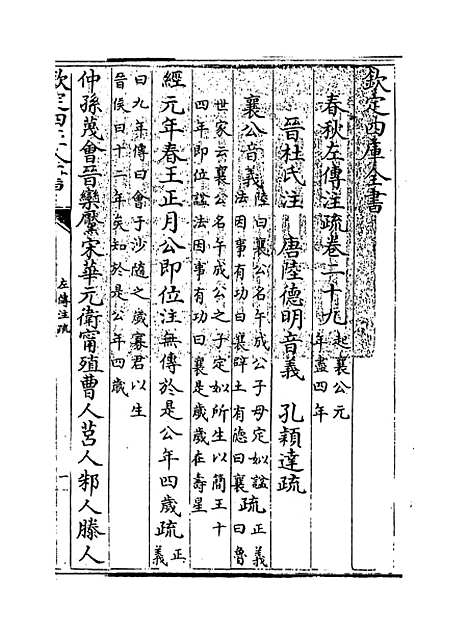 欽定四庫全書
春秋左傳注疏卷二十九起襄公元
年盡四年
晉杜氏注 唐陸德明音義 孔穎達疏
襄公音義陸曰襄公名午成公子母定姒諡
法因事有功曰襄辟土有德曰襄疏正義
曰魯
世家云襄公名午成公之子定姒所生以簡王十
四年即位諡法因事有功曰襄是歲歲在壽星
經元年春王正月公即位注無傳於是公年四歲疏正
義
曰九年傳曰會于沙隨之歲寡君以生
晉侯曰十二年矣知於是公年四歲
仲孫蔑會晉欒黶宋華元衛甯殖曹人莒人邾人滕人
欽定四庫全書
左傳注疏
一